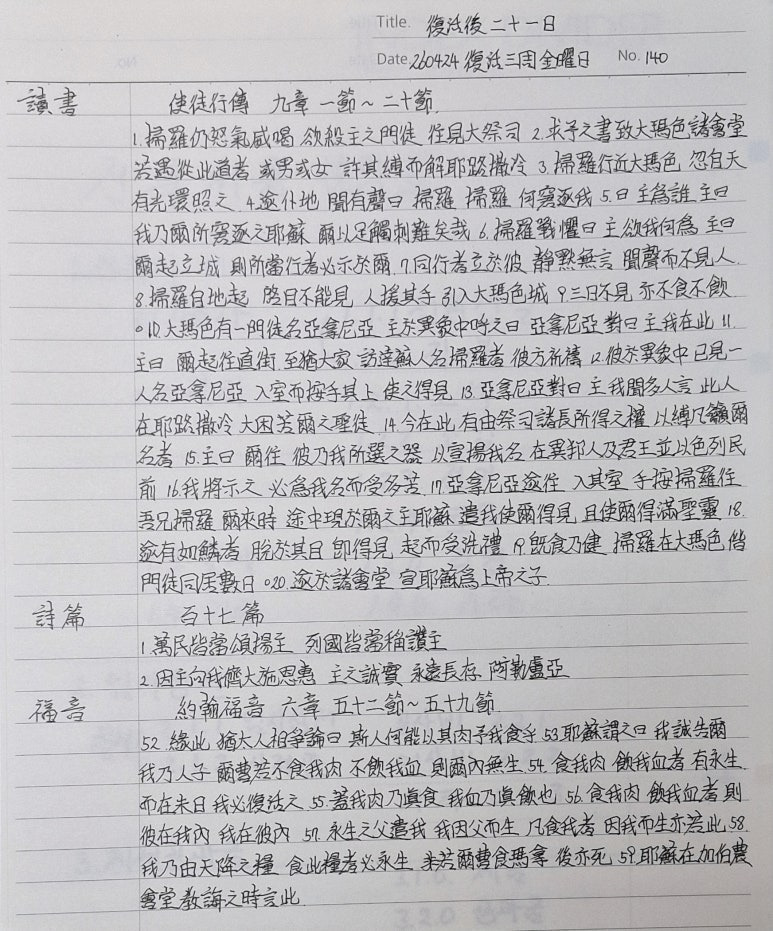 Title. 復活後二十一日
Date 260424 復活三周金曜日 No. 140
讀書 使徒行傳 九章 一節~二十節.
1. 掃羅仍怒氣威喝 欲殺主之門徒 往見大祭司 2. 求予之書致大瑪色諸會堂
若遇從此道者 或男或女 許其縛而解耶路撒冷 3. 掃羅行近大瑪色 忽自天
有光環照之. 4. 遂仆地 聞有聲曰 掃羅 掃羅 何窘逐我 5. 曰 主為誰 主曰
我乃爾所窘逐之耶穌 爾以足觸刺難矣哉 6. 掃羅戰懼曰 主欲我何為 主曰
爾起立城 則所當行者必示於爾. 7. 同行者立於彼 靜默無言 聞聲而不見人.
8. 掃羅自地起 啓目不能見 人援其手 引入大瑪色城 9. 三日不見 亦不食不飲
○10. 大瑪色有一門徒名亞拿尼亞 主於異象中呼之曰 亞拿尼亞 對曰 主我在此 11.
主曰 爾起往直街 至猶大家 訪達蘇人名掃羅者 彼方祈禱 12. 彼於異象中已見一
人名亞拿尼亞 入室而按手其上 使之得見 13. 亞拿尼亞對曰 主我聞多人言 此人
在耶路撒冷 大困苦爾之聖徒 14. 今在此 有由祭司諸長所得之權 以縛凡籲爾
名者 15. 主曰 爾往 彼乃我所選之器 以宣揚我名 在異邦人及君王並以色列民
前 16. 我將示之 必為我名而受多苦. 17. 亞拿尼亞遂往 入其室 手按掃羅往
吾兄掃羅 爾來時 途中現於爾之主耶穌 遣我使爾得見 且使爾得滿聖靈 18.
遂有如鱗者 脫於其目 卽得見 起而受洗禮 19. 旣食乃健 掃羅在大瑪色 偕
門徒同居數日 ○20. 遂於諸會堂 宣耶穌為上帝之子
詩篇 百十七篇
1. 萬民皆當頌揚主 列國皆當稱讚主
2. 因主向我儕大施恩惠 主之誠實 永遠長存 阿勒盧亞
福音 約翰福音 六章 五十二節~五十九節.
52. 緣此 猶大人相爭論曰 斯人何能以其肉予我食乎 53. 耶穌謂之曰 我誠告爾
我乃人子 爾曹若不食我肉 不飲我血 則爾內無生. 54. 食我肉 飲我血者 有永生.
而在末日 我必復活之 55. 蓋我肉乃眞食 我血乃眞飲也 56. 食我肉 飲我血者 則
彼在我內 我在彼內 57. 永生之父遣我 我因父而生 凡食我者 因我而生亦若此 58.
我乃由天降之糧 食此糧者必永生 若爾曹食瑪拿 後亦死 59. 耶穌在加伯農
會堂 敎誨之時言此